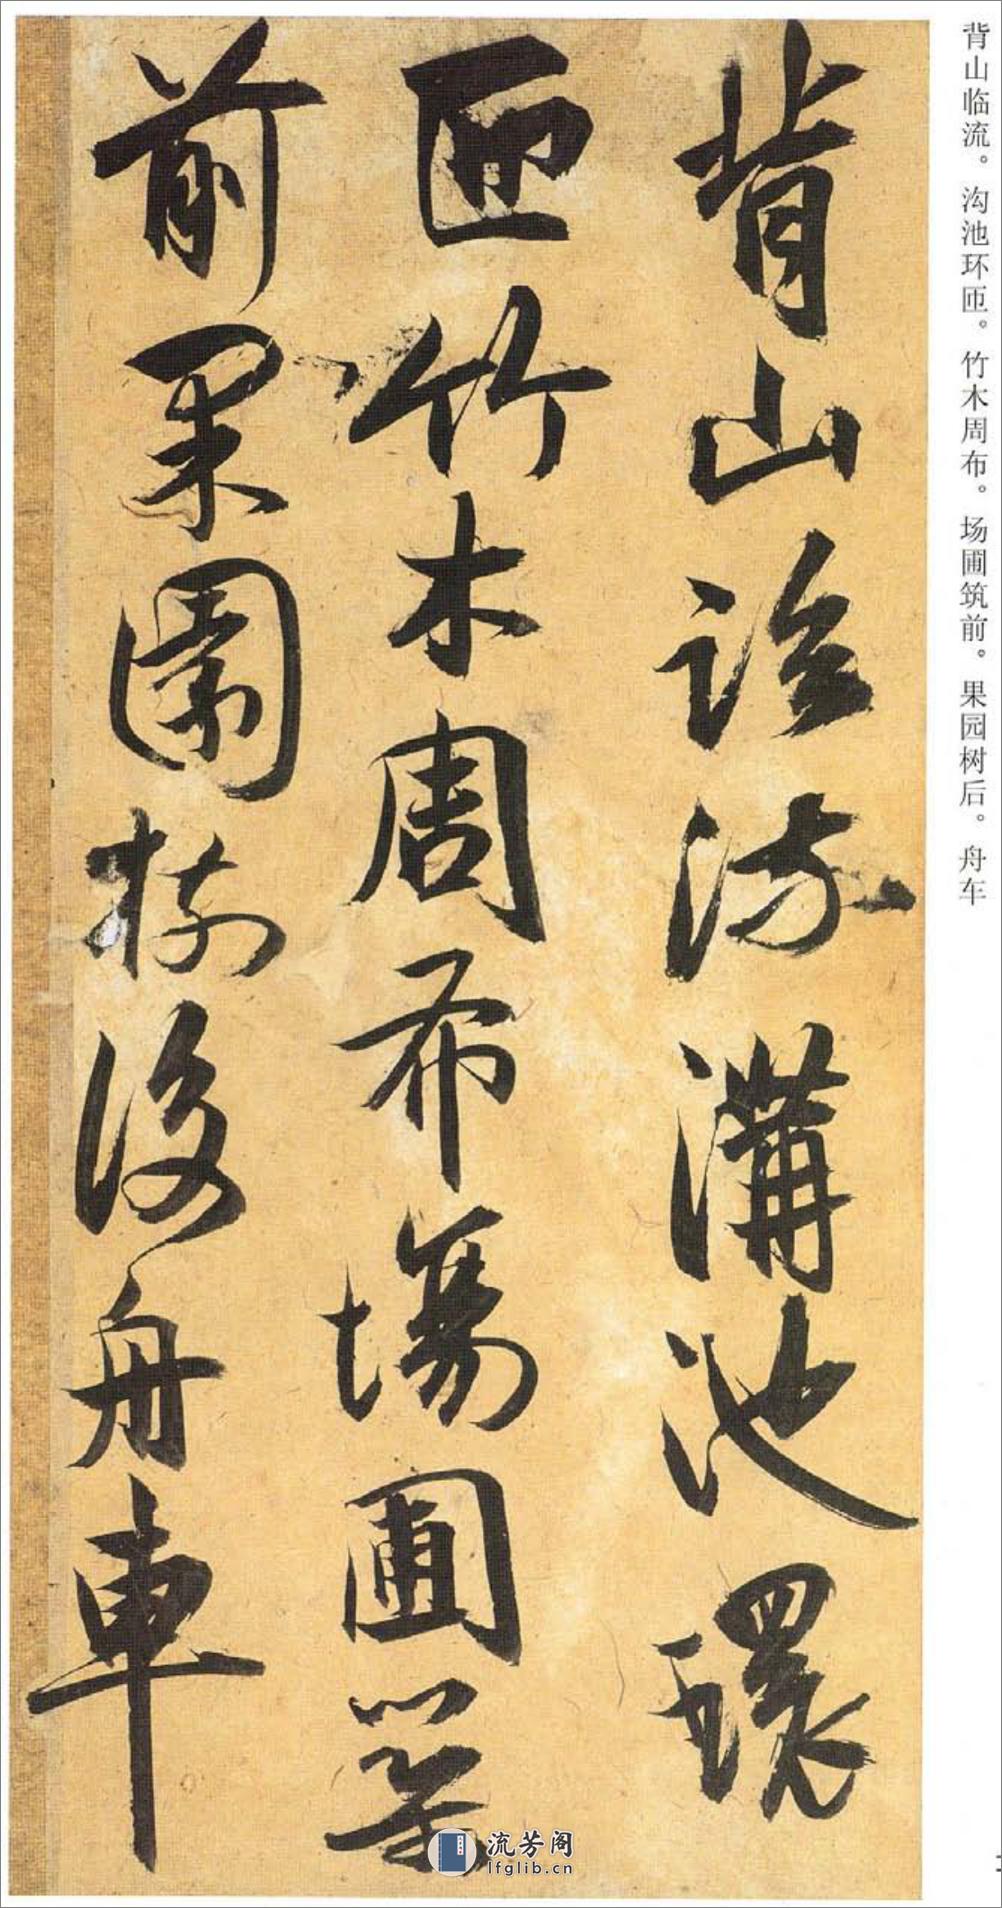 背山临流。沟池环匝。竹木周布。场圃筑前。果园树后。舟车
背山臨流溝池環
匝竹木周布場圃築
前果園樹後舟車
流芳阁
lfglib.cn